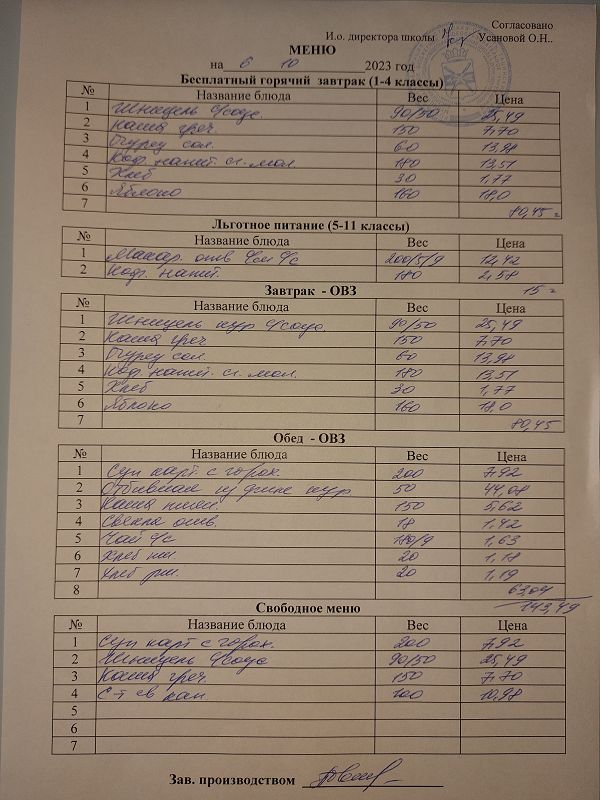 Согласовано
И.о. директора школы Усановой О.Н..
МЕНЮ
на 6 10 2023 год
Бесплатный горячий завтрак (1-4 классы)
№ Название блюда Вес Цена
1 Шницель 90/50 25,49
2 Каша греч 150 7,70
3 Огурец сол. 60 13,98
4 Коф. напит. сг. мол. 180 13,51
5 Хлеб 30 1,77
6 Яблоко 160 18,0
7 80,45
Льготное питание (5-11 классы)
№ Название блюда Вес Цена
1 Макар. отв с/с 200/5/9 12,42
2 Коф. напит. 180 2,58
15
Завтрак - ОВЗ
№ Название блюда Вес Цена
1 Шницель кур 90/50 25,49
2 Каша греч 150 7,70
3 Огурец сол. 60 13,98
4 Коф. напит. сг. мол. 180 13,51
5 Хлеб 30 1,77
6 Яблоко 160 18,0
7 80,45
Обед - ОВЗ
№ Название блюда Вес Цена
1 Суп карт с горох. 200 7,92
2 Отбивная из филе кур 50 44,08
3 Каша пшен. 150 5,62
4 Свекла отв. 18 1,42
5 Чай с/с 180/9 1,63
6 Хлеб пш. 20 1,18
7 Хлеб рж. 20 1,19
8 63,04
143,49
Свободное меню
№ Название блюда Вес Цена
1 Суп карт с горох. 200 7,92
2 Шницель 90/50 25,49
3 Каша греч 150 7,70
4 С-т св кап 100 10,98
5
6
7
Зав. производством